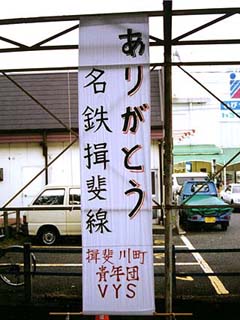 ありがとう
名鉄揖斐線
揖斐川町
青年団
VYS